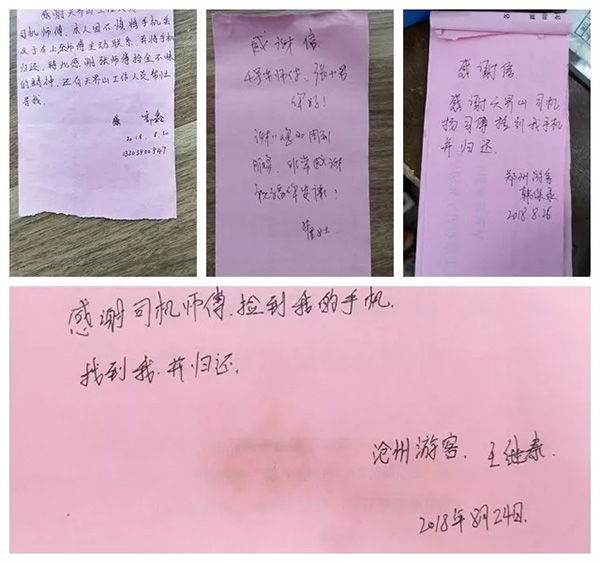 感谢天界山工作人员
司机师傅,本人因不慎将手机丢
失于车上张师傅主动联系,并将手机
归还,特此感谢张师傅拾金不昧
的精神,还有天界山工作人员帮忙
寻找
2018.8.20
感谢信
你好!
谢谢您的周到
服务,非常感谢
感谢信
感谢天界山司机
杨司傅捡到我手机
并归还.
郑州游客
韩保录
2018.8.26
感谢司机师傅.捡到我的手机.
找到我.并归还.
沧州游客. 王继泰.
2018年8月24日.